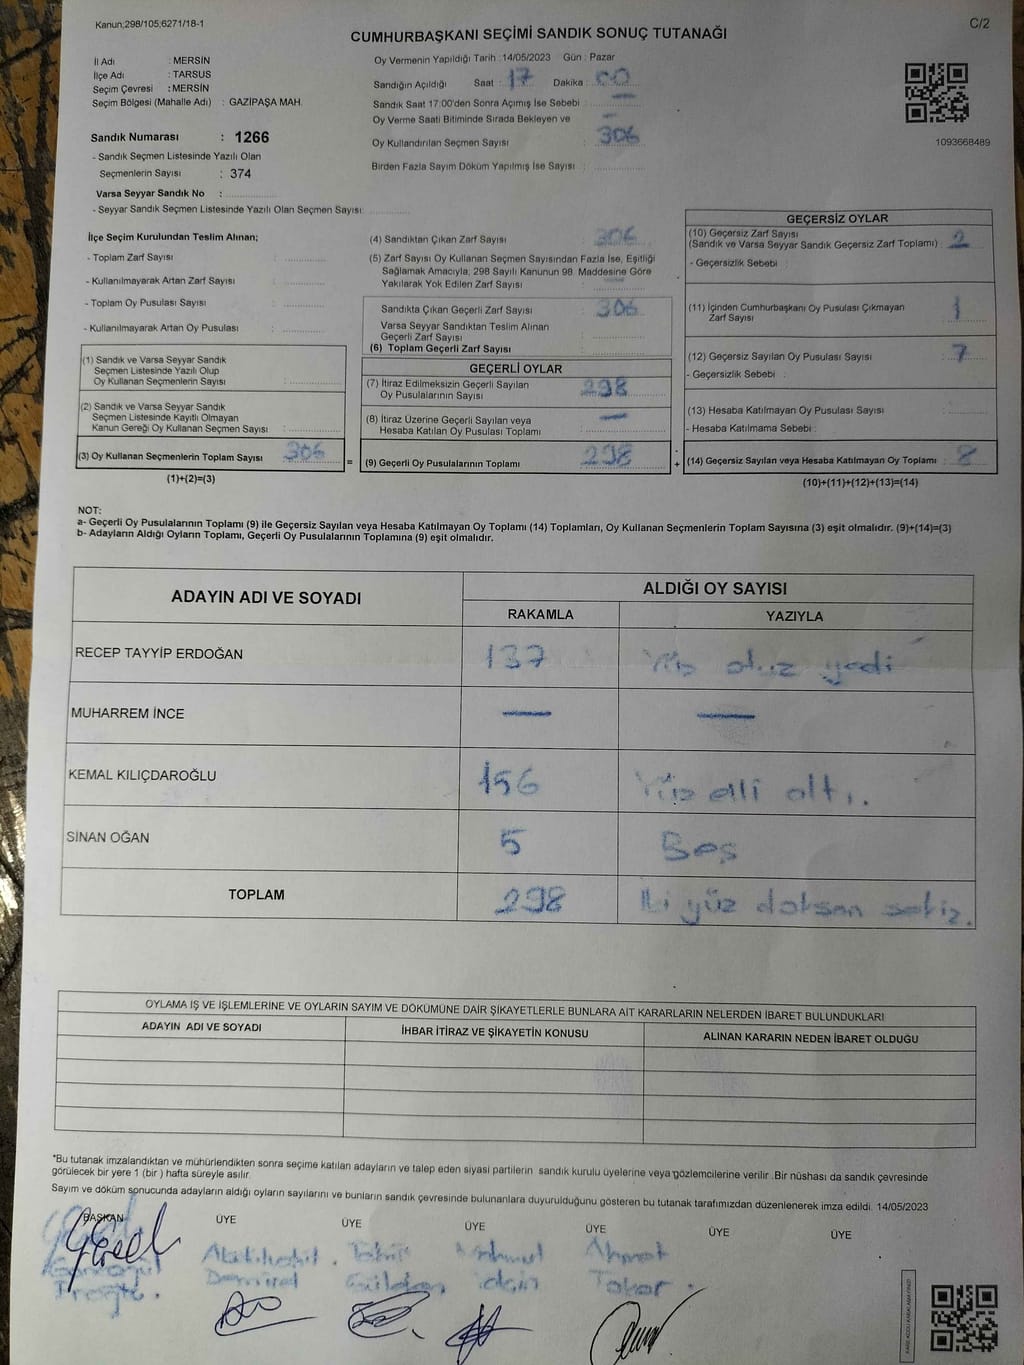 Kanun;298/105;6271/18-1
C/2
CUMHURBAŞKANI SEÇİMİ SANDIK SONUÇ TUTANAĞI
İl Adı : MERSİN
İlçe Adı : TARSUS
Seçim Çevresi : MERSİN
Seçim Bölgesi (Mahalle Adı) : GAZİPAŞA MAH.
Sandık Numarası : 1266
- Sandık Seçmen Listesinde Yazılı Olan
Seçmenlerin Sayısı : 374
Varsa Seyyar Sandık No :
- Seyyar Sandık Seçmen Listesinde Yazılı Olan Seçmen Sayısı:
Oy Vermenin Yapıldığı Tarih :14/05/2023 Gün : Pazar
Sandığın Açıldığı Saat : 17 Dakika : 00
Sandık Saat 17:00'den Sonra Açımış İse Sebebi : —
Oy Verme Saati Bitiminde Sırada Bekleyen ve
Oy Kullandırılan Seçmen Sayısı : 306
Birden Fazla Sayım Döküm Yapılmış İse Sayısı :
1093668489
İlçe Seçim Kurulundan Teslim Alınan;
- Toplam Zarf Sayısı :
- Kullanılmayarak Artan Zarf Sayısı :
- Toplam Oy Pusulası Sayısı :
- Kullanılmayarak Artan Oy Pusulası :
(1) Sandık ve Varsa Seyyar Sandık
Seçmen Listesinde Yazılı Olup
Oy Kullanan Seçmenlerin Sayısı :
(2) Sandık ve Varsa Seyyar Sandık
Seçmen Listesinde Kayıtlı Olmayan
Kanun Gereği Oy Kullanan Seçmen Sayısı :
(3) Oy Kullanan Seçmenlerin Toplam Sayısı : 306
(1)+(2)=(3)
=
(4) Sandıktan Çıkan Zarf Sayısı : 306
(5) Zarf Sayısı Oy Kullanan Seçmen Sayısından Fazla İse, Eşitliği
Sağlamak Amacıyla, 298 Sayılı Kanunun 98. Maddesine Göre
Yakılarak Yok Edilen Zarf Sayısı : —
Sandıkta Çıkan Geçerli Zarf Sayısı : 306
Varsa Seyyar Sandıktan Teslim Alınan
Geçerli Zarf Sayısı :
(6) Toplam Geçerli Zarf Sayısı :
GEÇERLİ OYLAR
(7) İtiraz Edilmeksizin Geçerli Sayılan
Oy Pusulalarının Sayısı : 298
(8) İtiraz Üzerine Geçerli Sayılan veya
Hesaba Katılan Oy Pusulası Toplamı : —
(9) Geçerli Oy Pusulalarının Toplamı : 298
+
GEÇERSİZ OYLAR
(10) Geçersiz Zarf Sayısı
(Sandık ve Varsa Seyyar Sandık Geçersiz Zarf Toplamı) : 2
- Geçersizlik Sebebi :
(11) İçinden Cumhurbaşkanı Oy Pusulası Çıkmayan
Zarf Sayısı : 1
(12) Geçersiz Sayılan Oy Pusulası Sayısı : 7
- Geçersizlik Sebebi :
(13) Hesaba Katılmayan Oy Pusulası Sayısı :
- Hesaba Katılmama Sebebi :
(14) Geçersiz Sayılan veya Hesaba Katılmayan Oy Toplamı : 8
(10)+(11)+(12)+(13)=(14)
NOT:
a- Geçerli Oy Pusulalarının Toplamı (9) ile Geçersiz Sayılan veya Hesaba Katılmayan Oy Toplamı (14) Toplamları, Oy Kullanan Seçmenlerin Toplam Sayısına (3) eşit olmalıdır. (9)+(14)=(3)
b- Adayların Aldığı Oyların Toplamı, Geçerli Oy Pusulalarının Toplamına (9) eşit olmalıdır.
ADAYIN ADI VE SOYADI
ALDIĞI OY SAYISI
RAKAMLA YAZIYLA
RECEP TAYYİP ERDOĞAN 137 Yüz otuz yedi
MUHARREM İNCE — —
KEMAL KILIÇDAROĞLU 156 Yüz elli altı.
SİNAN OĞAN 5 Beş
TOPLAM 298 İki yüz doksan sekiz.
OYLAMA İŞ VE İŞLEMLERİNE VE OYLARIN SAYIM VE DÖKÜMÜNE DAİR ŞİKAYETLERLE BUNLARA AİT KARARLARIN NELERDEN İBARET BULUNDUKLARI
ADAYIN ADI VE SOYADI İHBAR İTİRAZ VE ŞİKAYETİN KONUSU ALINAN KARARIN NEDEN İBARET OLDUĞU
*Bu tutanak imzalandıktan ve mühürlendikten sonra seçime katılan adayların ve talep eden siyasi partilerin sandık kurulu üyelerine veya gözlemcilerine verilir. Bir nüshası da sandık çevresinde
görülecek bir yere 1 (bir ) hafta süreyle asılır.
Sayım ve döküm sonucunda adayların aldığı oyların sayılarını ve bunların sandık çevresinde bulunanlara duyurulduğunu gösteren bu tutanak tarafımızdan düzenlenerek imza edildi. 14/05/2023
BAŞKAN ÜYE ÜYE ÜYE ÜYE ÜYE ÜYE
Mahmut Ahmet
Demirel Gülden Toker